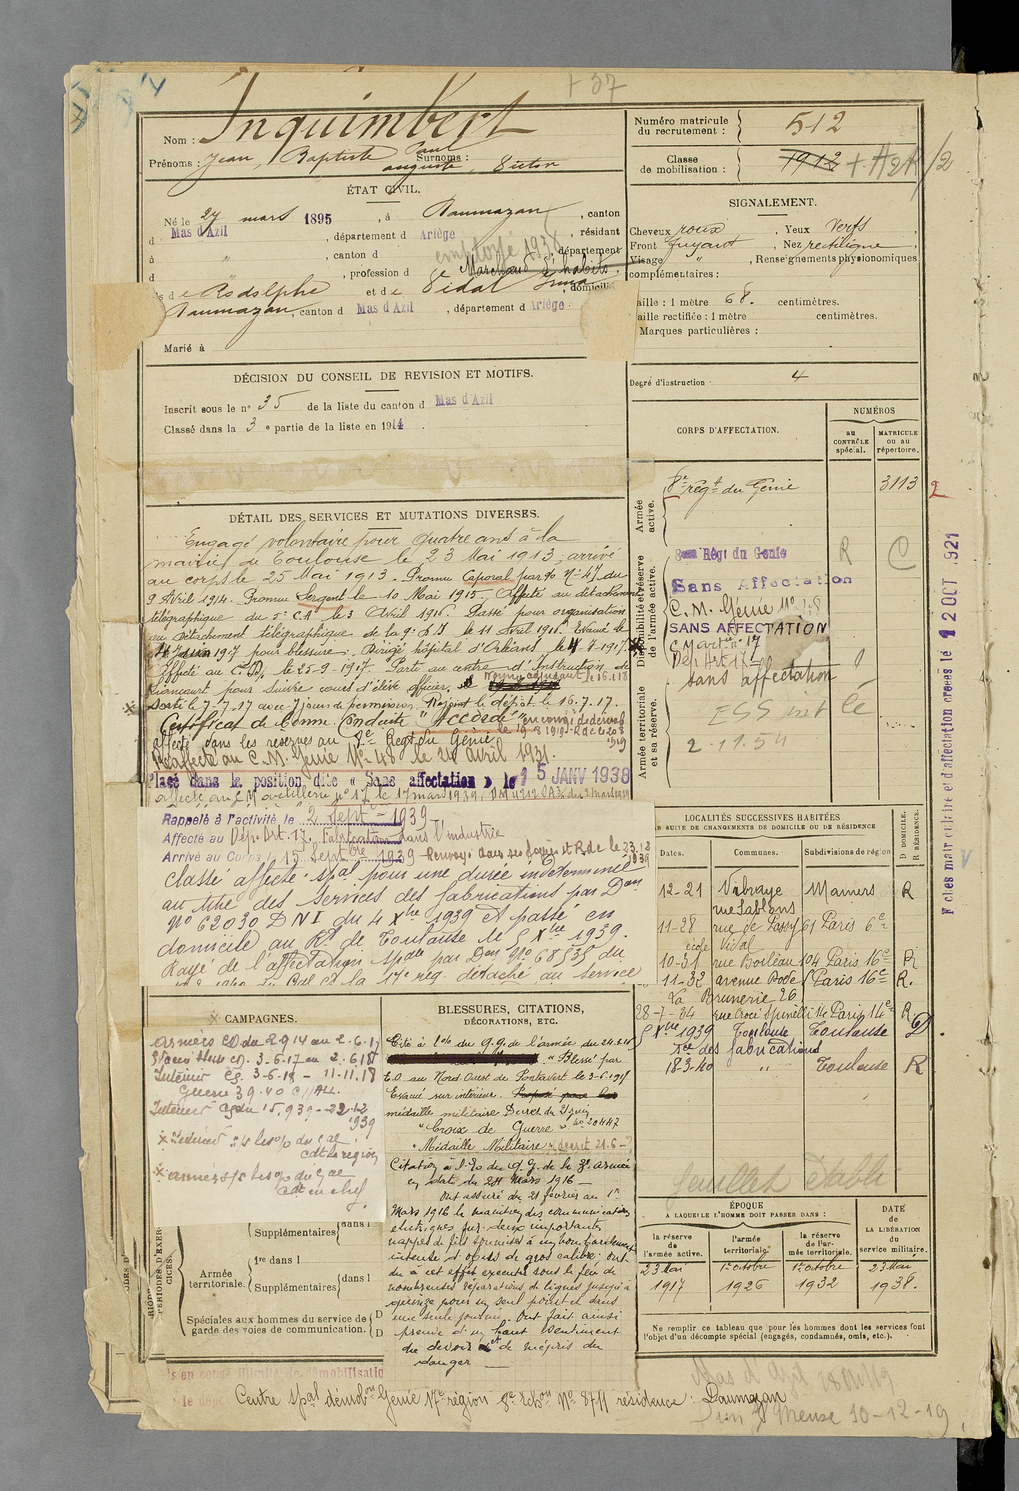 + 37
Inquimbert
Nom :
Paul
Prénoms : Jean, Baptiste Surnoms :
auguste, Victor
Numéro matricule du recrutement : 512
Classe de mobilisation : 1912
ÉTAT CIVIL.
Né le 27 mars 1895, à Daumazan, canton
d Mas d'Azil, département d Ariège, résidant
à " , canton d employé 1938, département
d , profession d e Marchand d'habits
de Rodolphe et de Vidal , domiciliés
Daumazan, canton d Mas d'Azil, département d Ariège.
Marié à
SIGNALEMENT.
Cheveux roux, Yeux Verts
Front fuyant, Nez rectiligne
Visage " , Renseignements physionomiques
complémentaires :
Taille : 1 mètre 68. centimètres.
Taille rectifiée : 1 mètre centimètres.
Marques particulières :
Degré d'instruction 4
DÉCISION DU CONSEIL DE REVISION ET MOTIFS.
Inscrit sous le n° 35 de la liste du canton d Mas d'Azil
Classé dans la 3 e partie de la liste en 1914.
CORPS D'AFFECTATION.
NUMÉROS
au CONTRÔLE spécial.
MATRICULE ou au répertoire.
Armée active.
8e régt du Génie 3113 2
Disponibilité et réserve de l'armée active.
8me Régt du Genie R C
Sans Affectation
C.M. Génie N° 48
SANS AFFECTATION
C M art n° 17
Dep Art 17
sans affectation
Armée territoriale et sa réserve.
2-11.54
DÉTAIL DES SERVICES ET MUTATIONS DIVERSES.
Engagé volontaire pour quatre ans à la
mairie de Toulouse le 23 Mai 1913, arrivé
au corps le 25 Mai 1913. Promu Caporal par go N° 47 du
9 Avril 1914. Promu Sergent le 10 Mai 1915. Affecté au détachement
télégraphique du 5e C.A le 3 Avril 1916. Passé pour organisation
au Détachement télégraphique de la 9e D.I le 11 Avril 1916. Evacué le
4 juin 1917 pour blessure. Dirigé hôpital d'Orléans le 4-8-1917.
Affecté au C.D. le 25-9-1917. Parti au centre d'Instruction de
Liancourt pour suivre cours d'élève officier. Nommé adjudant le 16.1.18
Sorti le 7-7-17 avec 7 jours de permission. Rejoint le dépôt le 16.7.17.
Certificat de bonne Conduite "Accordé" en congé de démob
le 19-8-1919. R de le 20 8 1919
affecté dans les réserves au 8e Regt du Génie
Réaffecté au C.M. Génie N° 48 le 24 avril 1931.
Placé dans la position dite « Sans affectation » le 15 JANV 1938
affecté au C M artillerie n° 17 le 17 mars 1939
Rappelé à l'activité le 2 Septbre 1939
Affecté au Dep. Art. 17, Fabrication dans l'industrie
Arrivé au Corps 15 Septbre 1939 Renvoyé dans ses foyers et R de le 23.12 1939
Classé affecté spal pour une durée indéterminée
au titre des Services des fabrications par Don
N° 62030 DNI du 4 Xbre 1939 et passé en
domicile au Rt de Toulouse le 5 Xbre 1939.
Rayé de l'affectation spale par Don N° 68535 du
LOCALITÉS SUCCESSIVES HABITÉES
PAR SUITE DE CHANGEMENTS DE DOMICILE OU DE RÉSIDENCE
D DOMICILE.
R RÉSIDENCE.
Dates. Communes. Subdivisions de région
12-21 Vibraye Mamers R
rue Sablons
11-28 rue de Passy 61 Paris 6e
école Vidal
10-31 rue Boileau 104 Paris 16e R
11-32 avenue Rode Paris 16e R.
La Brunerie 26
28-7-34 rue Croce Spinelli 14 Paris 14e R
5 Xbre 1939 Toulouse Toulouse D.
Sce des fabrications
18-3-40 " Toulouse R
feuillet établi
CAMPAGNES.
Armées CD du 2 9 14 au 2.6.17
Blessé Hist cg. 3-6-17 au 2.6.18
Intérieur cg. 3-6-18 - 11-11.18
Guerre 39.40 c/ALL.
Intérieur CS du 15.9.39 - 22.12 1939
Intérieur
cdt la région
armées
cdt en chef.
BLESSURES, CITATIONS, DÉCORATIONS, ETC.
Cité à l'ordre du q.g. de l'armée du 24.3.16
"Blessé par
E.O au Nord-Ouest de Pontavert le 3-6-1917
Evacué sur intérieur.
médaille militaire Décret du
"Croix de Guerre" N° 20447
"Médaille Militaire" décret 21.6-
Citation à l'Eo du Q.G. de la 3e armée
en date du 24 Mars 1916 —
Ont assuré du 21 février au 1er
Mars 1916 le maintien des communications
électriques sur deux importantes
nappes de fils soumises à un bombardement
intense d'obus de gros calibre. Ont
du à cet effet exécuter sous le feu de
nombreuses réparations de lignes jusqu'à
quinze pour un seul poste et dans
une seule journée. Ont fait ainsi
preuve d'un haut sentiment
du devoir et de mépris du
danger —
PÉRIODES D'EXERCICES.
Supplémentaires dans l
Armée territoriale.
1re dans l
Supplémentaires dans l
Spéciales aux hommes du service de garde des voies de communication. D D
ÉPOQUE
A LAQUELLE L'HOMME DOIT PASSER DANS :
DATE de LA LIBÉRATION du service militaire.
la réserve de l'armée active. l'armée territoriale. la réserve de l'armée territoriale.
23 Mai 1917 1er octobre 1926 1er octobre 1932 23 Mai 1938.
Ne remplir ce tableau que pour les hommes dont les services font
l'objet d'un décompte spécial (engagés, condamnés, omis, etc.).
en congé illimité de démobilisation
Centre spal démobon Génie 17e région 8e Echon N° 8711 résidence : Daumazan
Mas d'Azil
Meuse 10-12-19
12 OCT 1921